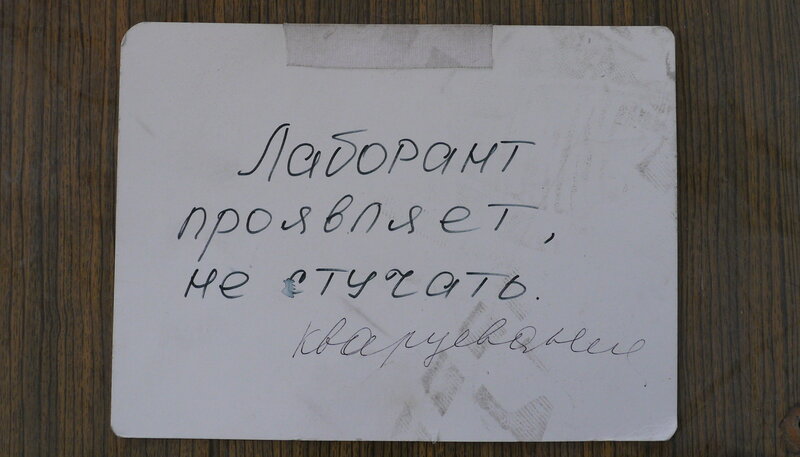 Лаборант
проявляет,
не стучать.
кварцевание